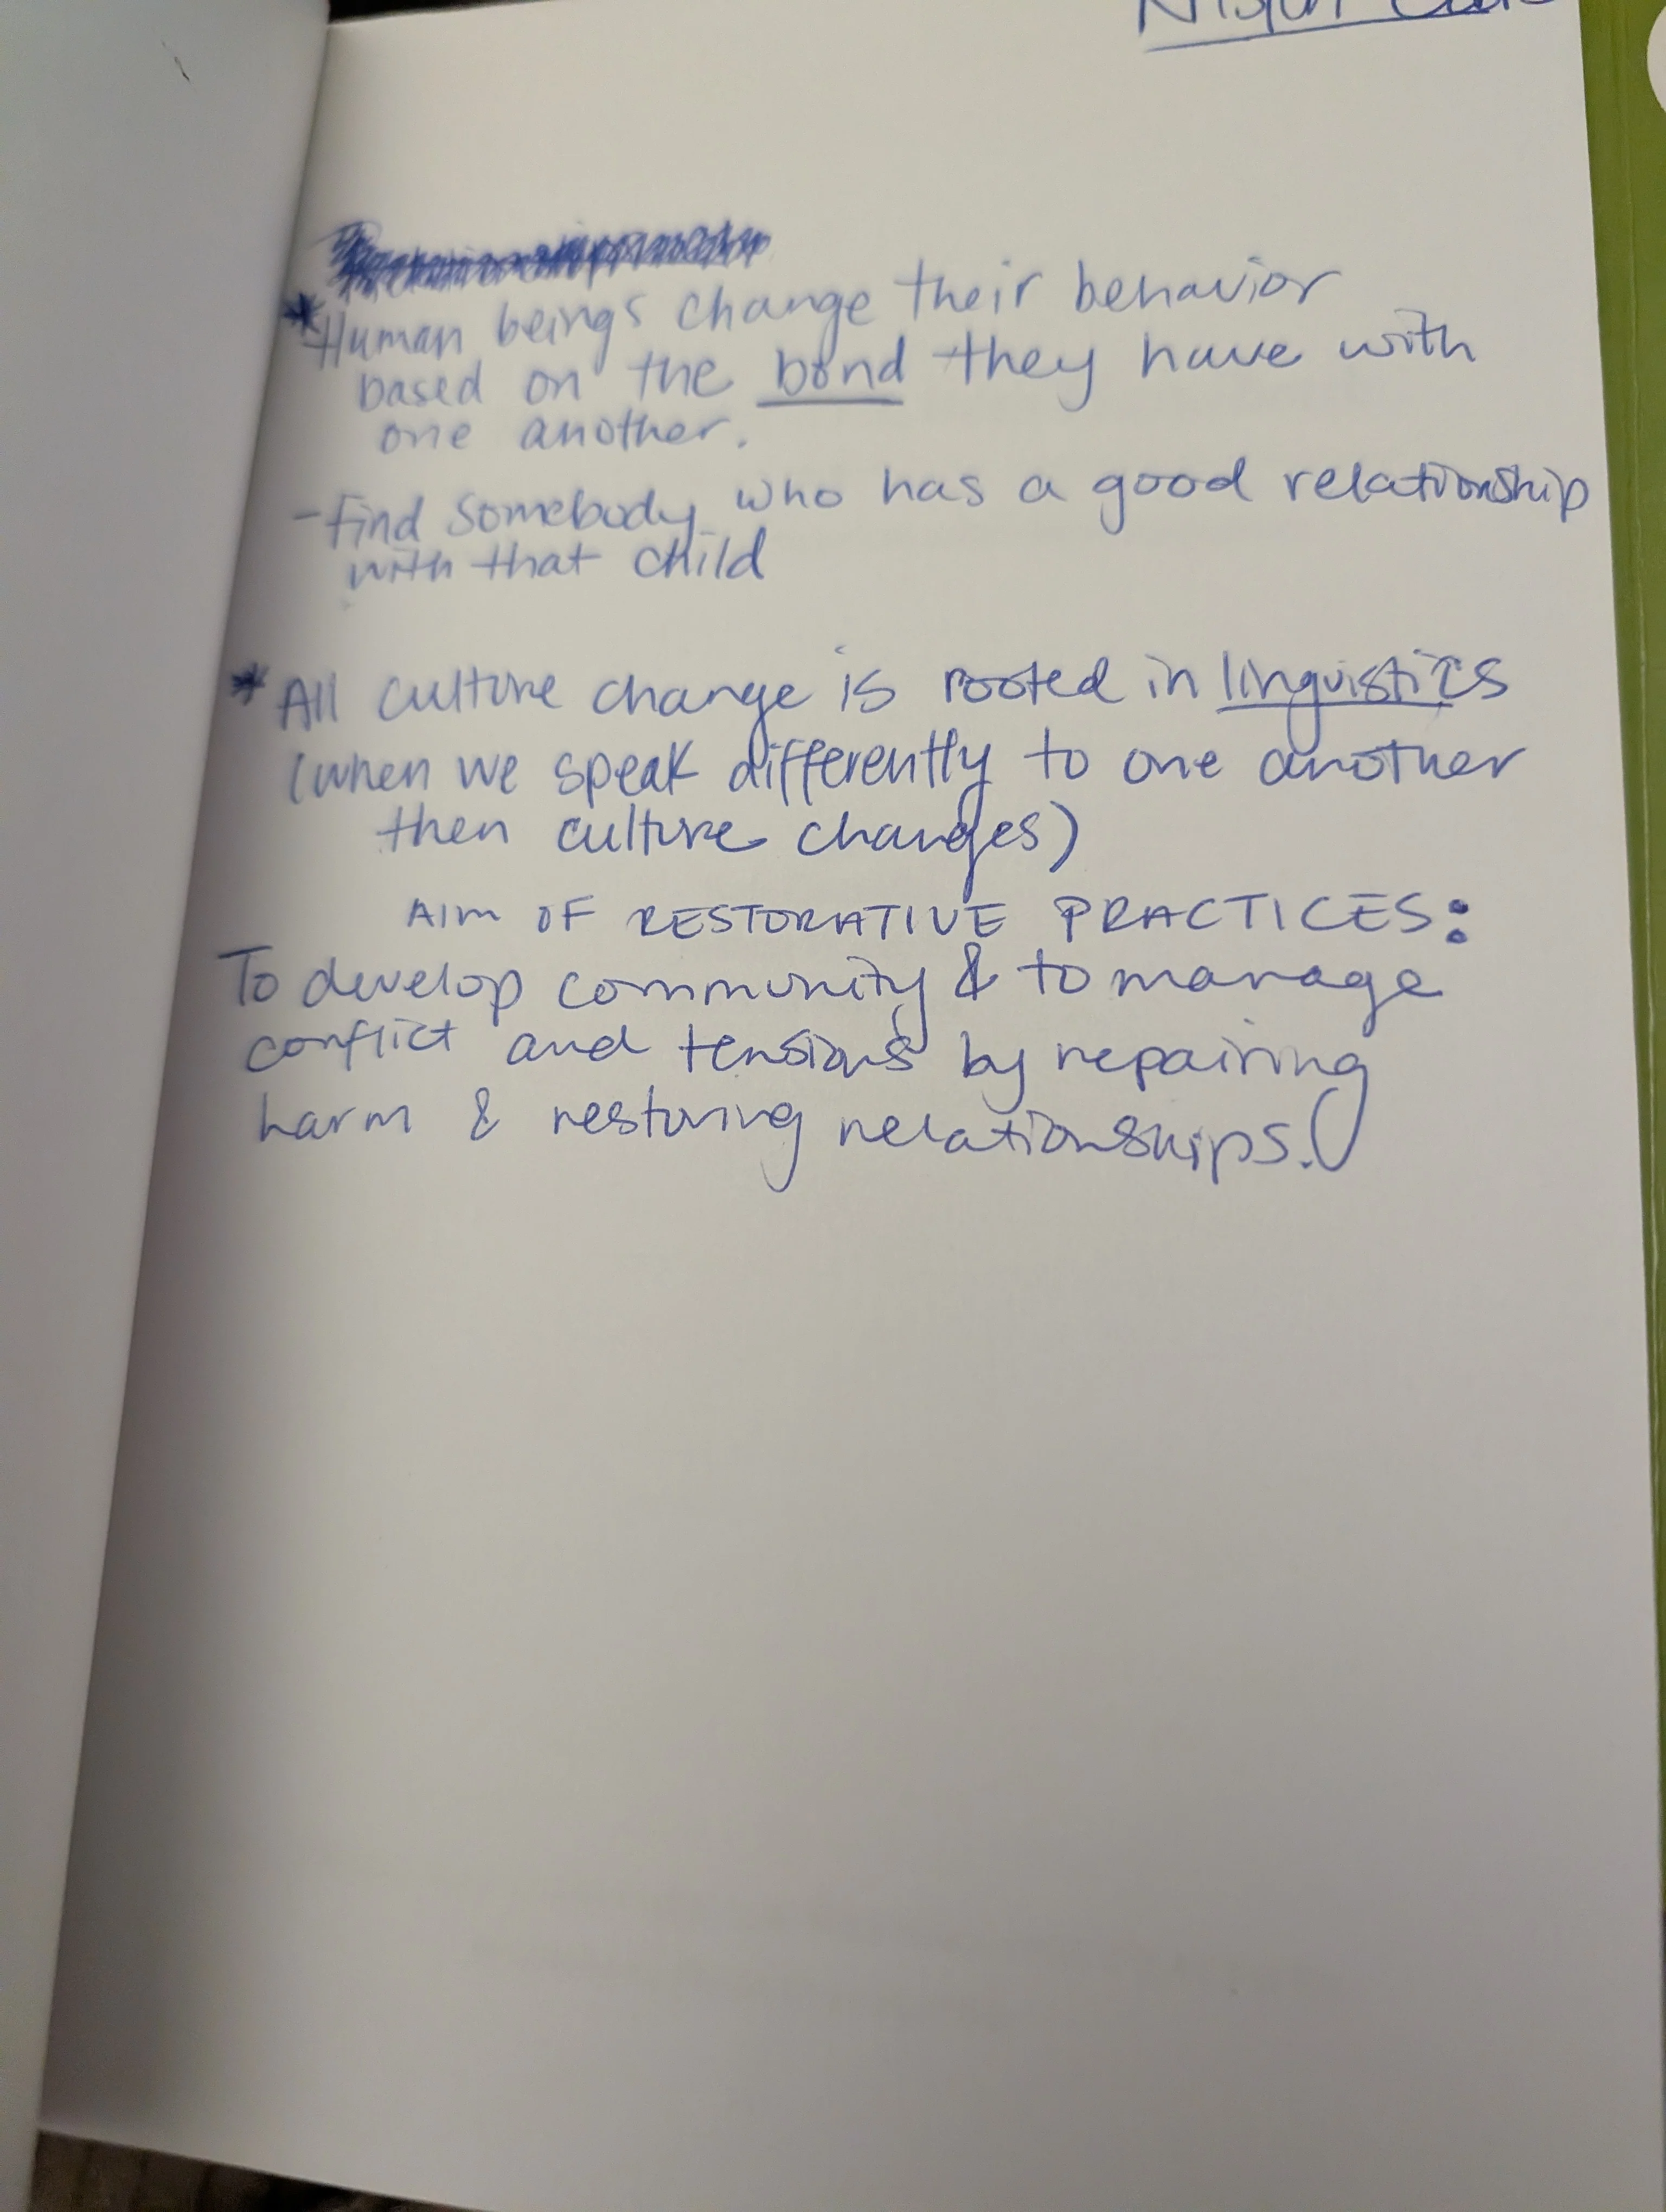 *Human beings change their behavior
based on the bond they have with
one another.
-find somebody who has a good relationship
with that child
*All culture change is rooted in linguistics
(when we speak differently to one another
then culture changes)
AIM OF RESTORATIVE PRACTICES:
To develop community & to manage
conflict and tensions by repairing
harm & restoring relationships.